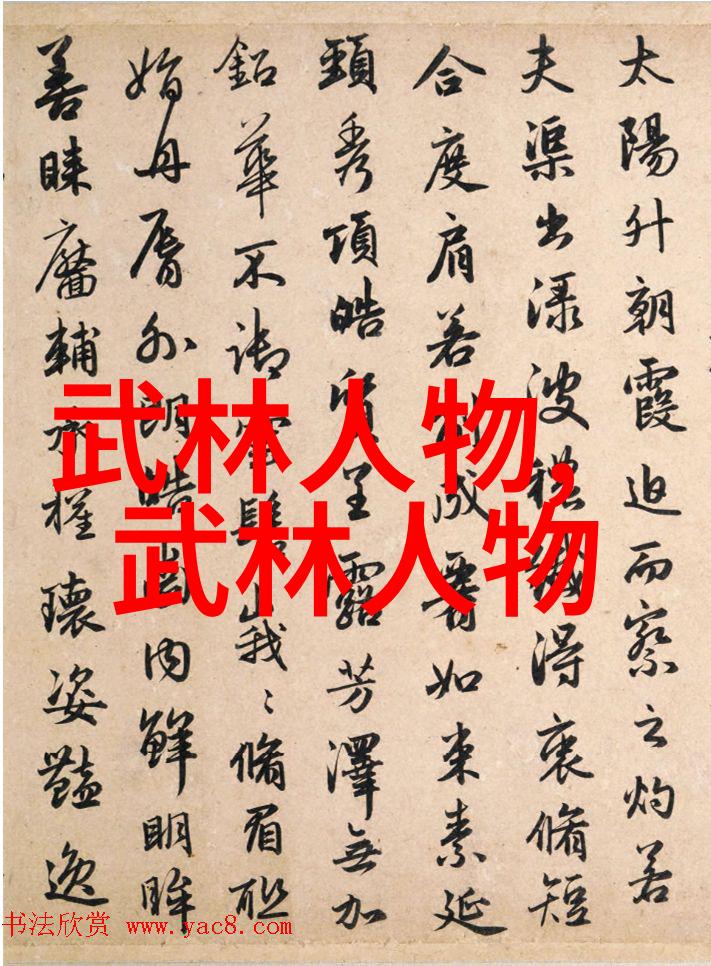 太陽升朝霞迫而察之灼若
夫渠出渌波穠纖得衷脩短
合度肩若削成要如束素延
頸秀項皓質呈露芳澤無加
鉛華不御雲髻峩〻脩眉聯
娟丹脣外朗皓齒内鮮明眸
善睐靨輔承權瓌姿豔逸
武林人物,
武林人物
书法欣赏 www.yac8.com